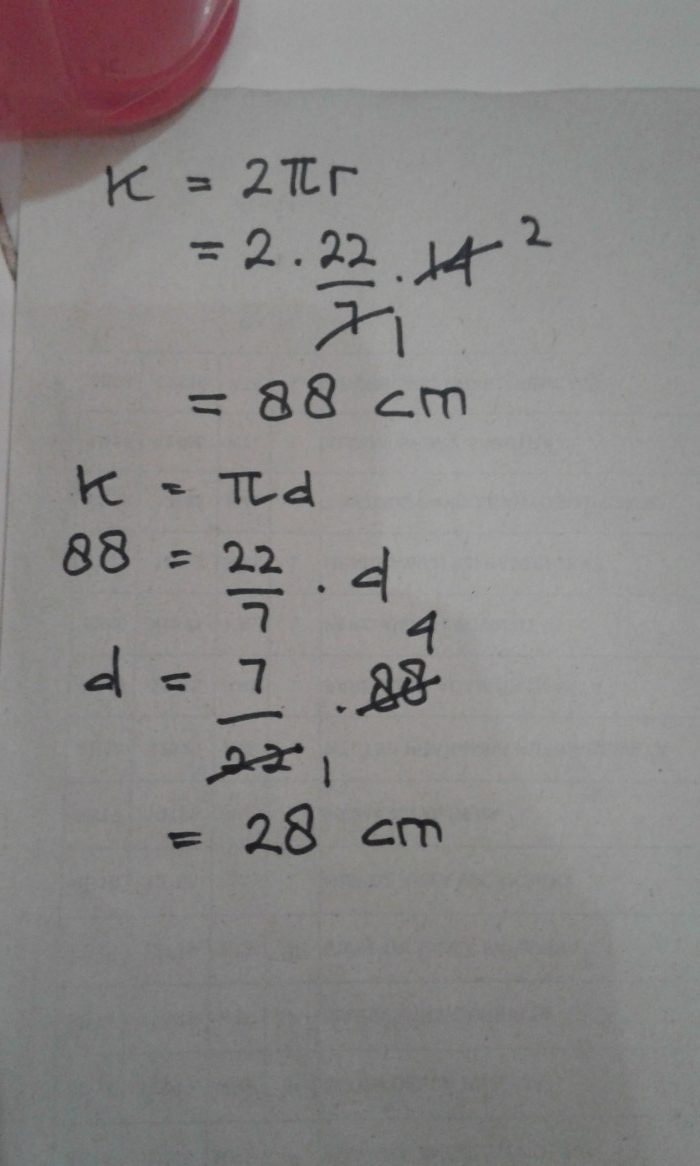 K = 2πr
= 2 . 22/7 . 14 2
1
= 88 cm
K = πd
88 = 22/7 . d
4
d = 7/22 . 88
1
= 28 cm